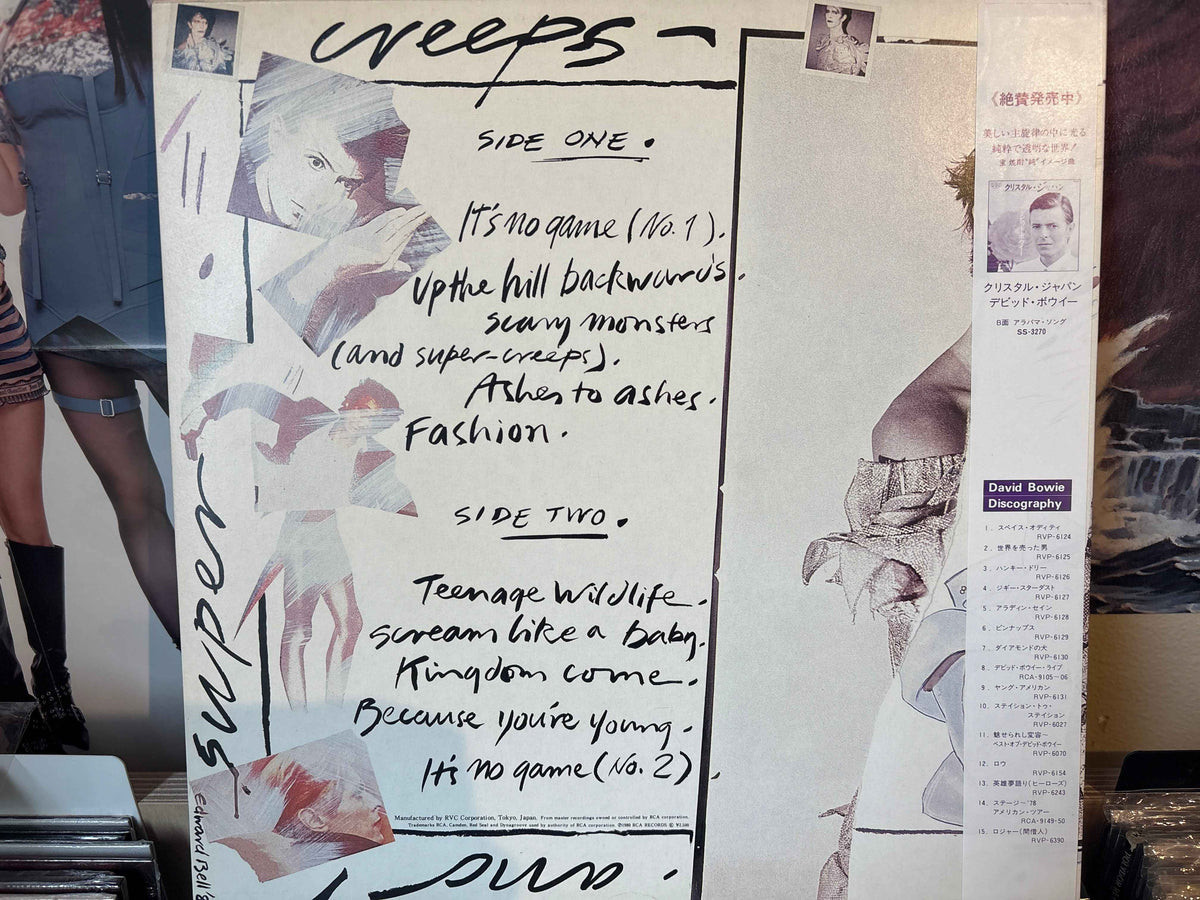 creeps —
SIDE ONE.
It's no game (No. 1).
Up the hill backwards.
scary monsters
(and super-creeps).
Ashes to ashes.
Fashion.
SIDE TWO.
Teenage Wildlife.
scream like a baby.
Kingdom come.
Because you're young.
It's no game (No. 2).
Manufactured by RVC Corporation, Tokyo, Japan. From master recordings owned or controlled by RCA corporation.
Trademarks RCA, Camden, Red Seal and Dynagroove used by authority of RCA corporation. ℗1980 RCA RECORDS
super
Edward Bell
and.
《絶賛発売中》
美しい主旋律の中に光る
純粋で透明な世界!
クリスタル・ジャパン
クリスタル・ジャパン
デビッド・ボウイー
B面 アラバマ・ソング
SS-3270
David Bowie
Discography
1. スペイス・オディティ
RVP-6124
2. 世界を売った男
RVP-6125
3. ハンキー・ドリー
RVP-6126
4. ジギー・スターダスト
RVP-6127
5. アラディン・セイン
RVP-6128
6. ピンナップス
RVP-6129
7. ダイアモンドの犬
RVP-6130
8. デビッド・ボウイー・ライブ
RCA-9105~06
9. ヤング・アメリカン
RVP-6131
10. ステイション・トゥ・
ステイション
RVP-6027
11. 魅せられし変容~
ベスト・オブ・デビッド・ボウイー
RVP-6070
12. ロウ
RVP-6154
13. 英雄夢語り(ヒーローズ)
RVP-6243
14. ステージ~'78
アメリカン・ツアー
RCA-9149-50
15. ロジャー(間借人)
RVP-6390